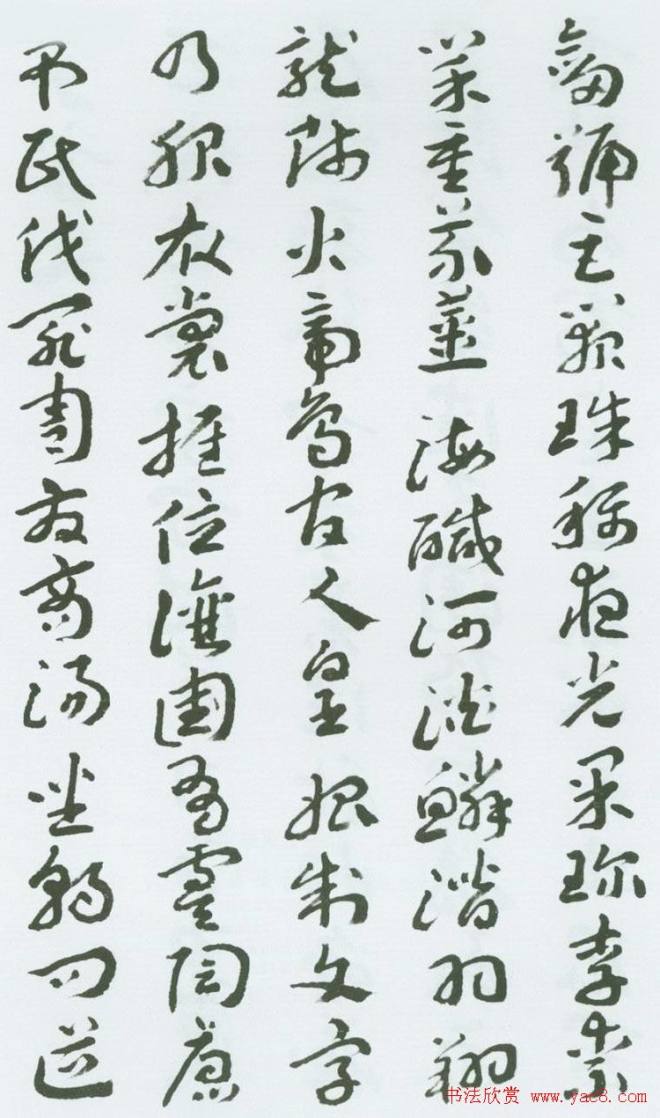 劍號巨闕珠稱夜光果珍李柰
菜重芥薑海鹹河淡鱗潛羽翔
龍師火帝鳥官人皇始制文字
乃服衣裳推位讓國有虞陶唐
弔民伐罪周發商湯坐朝問道
书法欣赏 www.yac8.com